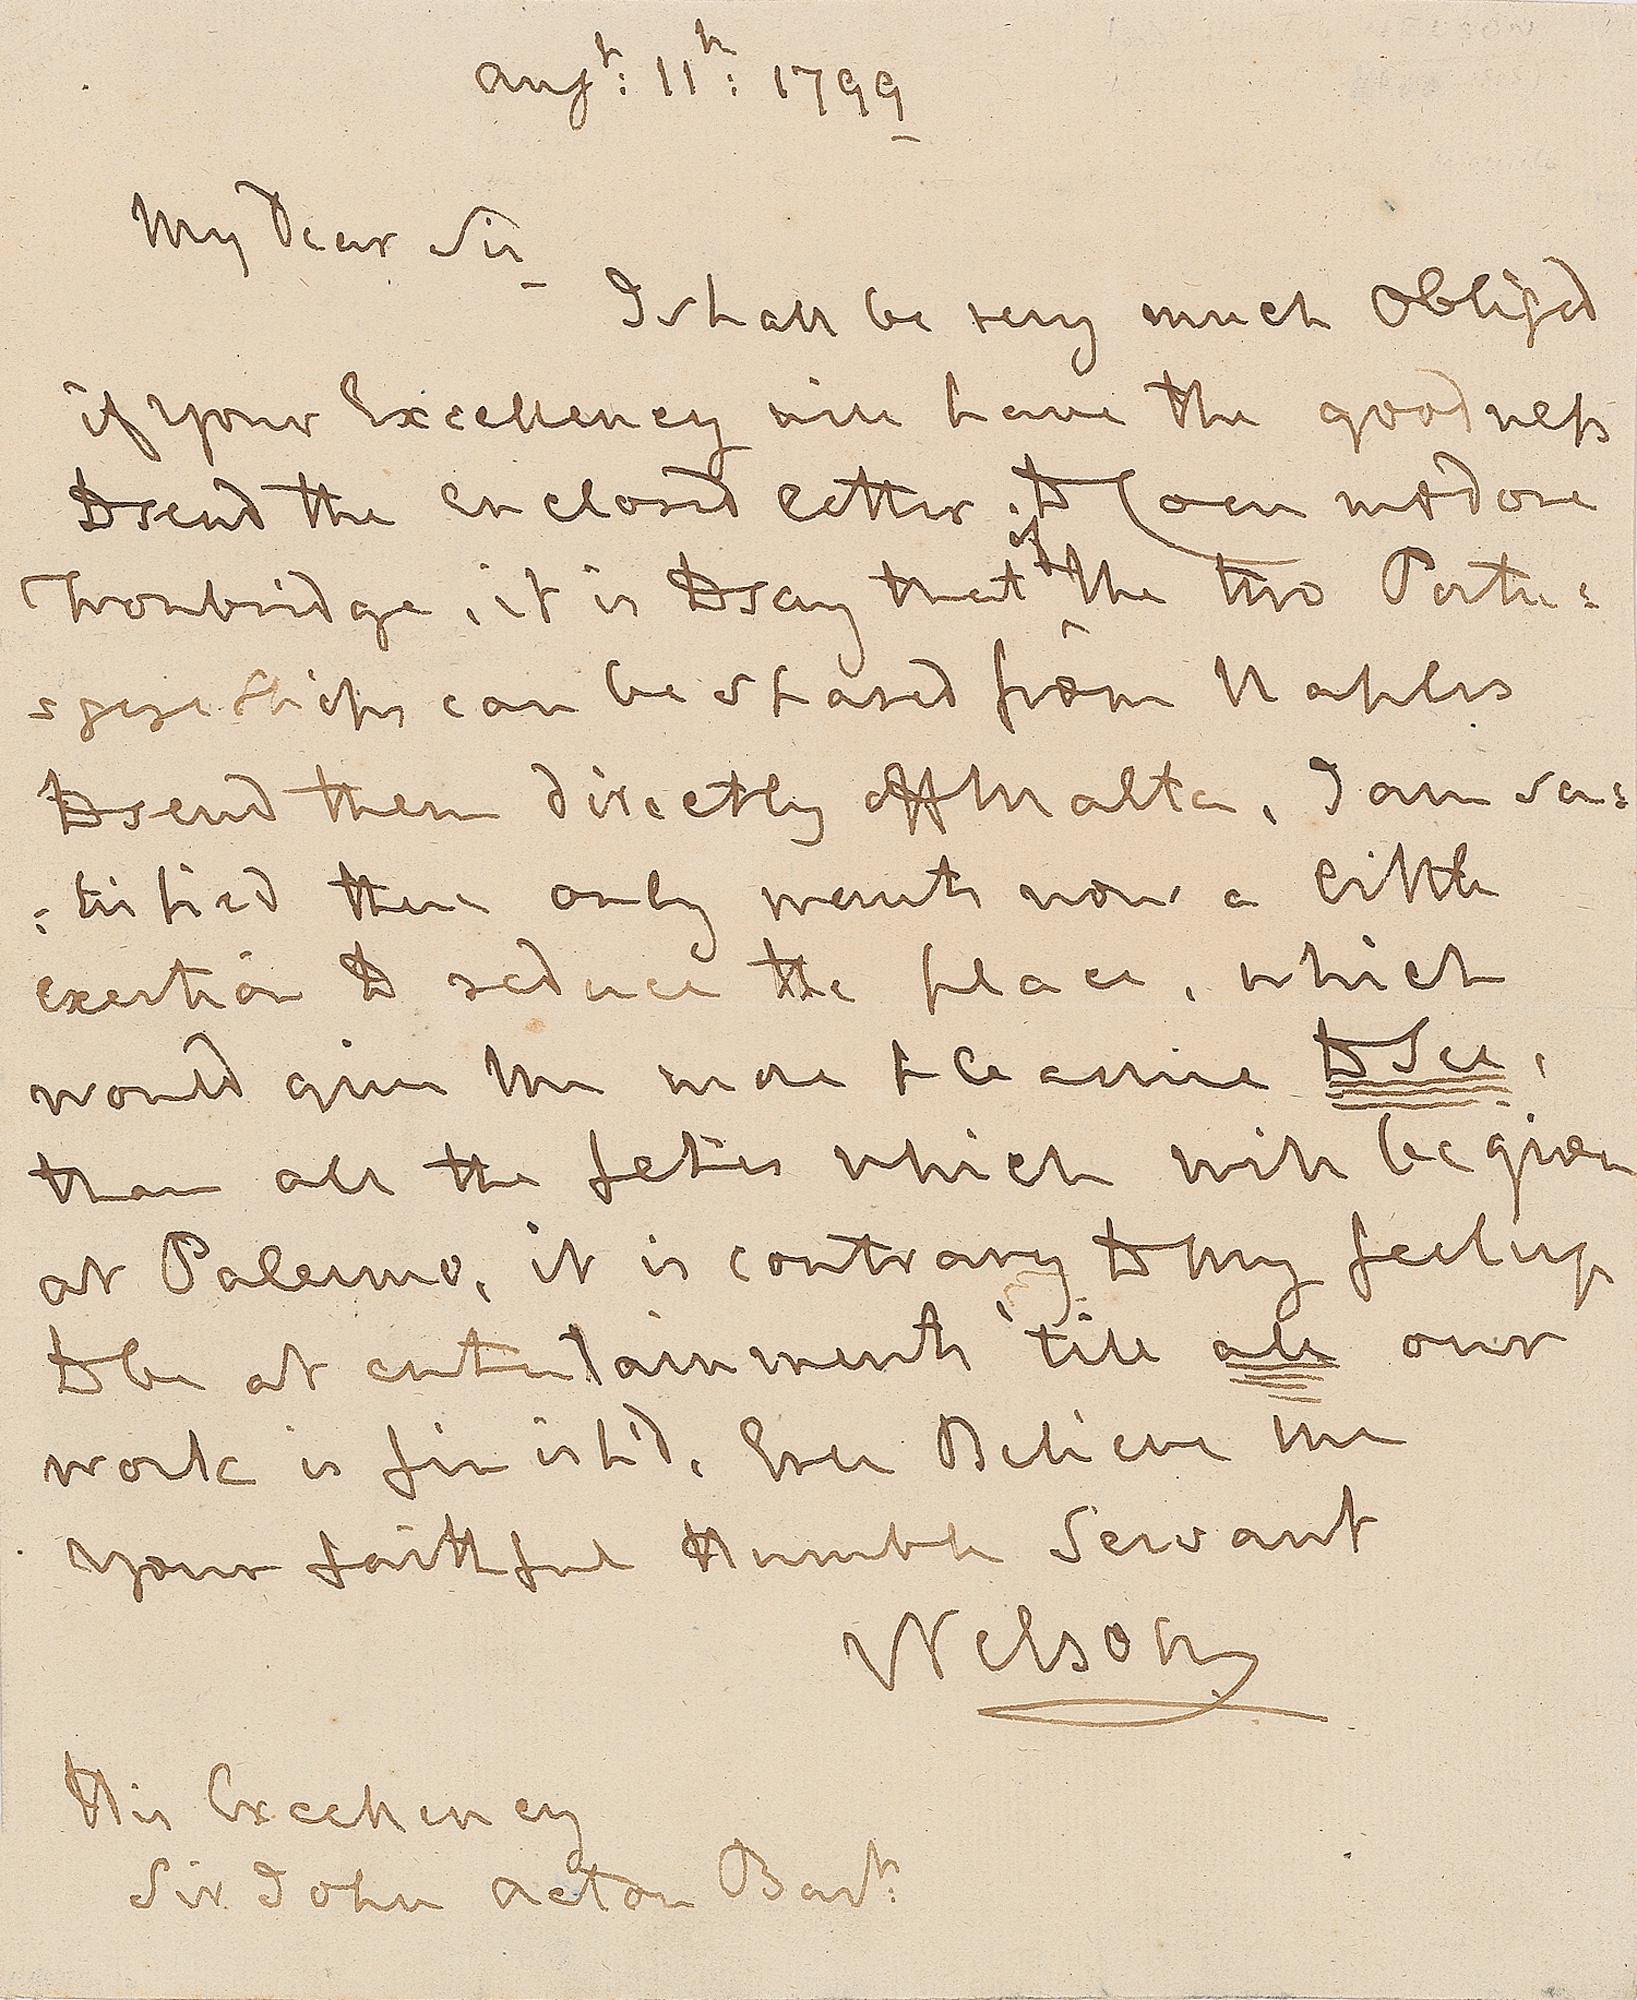 Augt: 11th: 1799
My Dear Sir
I shall be very much Obliged
if Your Excellency will have the goodness
to send the enclosed letter to Commodore
Troubridge, it is to say that if the two Portu:
:guese Ships can be spared from Naples
to send them directly off Malta, I am sa:
:tisfied there only wants now a little
exertion to reduce the place, which
would give me more pleasure to See,
than all the fetes which will be given
at Palermo, it is contrary to My feelings
to be at entertainments 'till all our
work is finish'd. Ever Believe me
Your faithful Humble Servant
Nelson
His Excellency
Sir John Acton Bart: